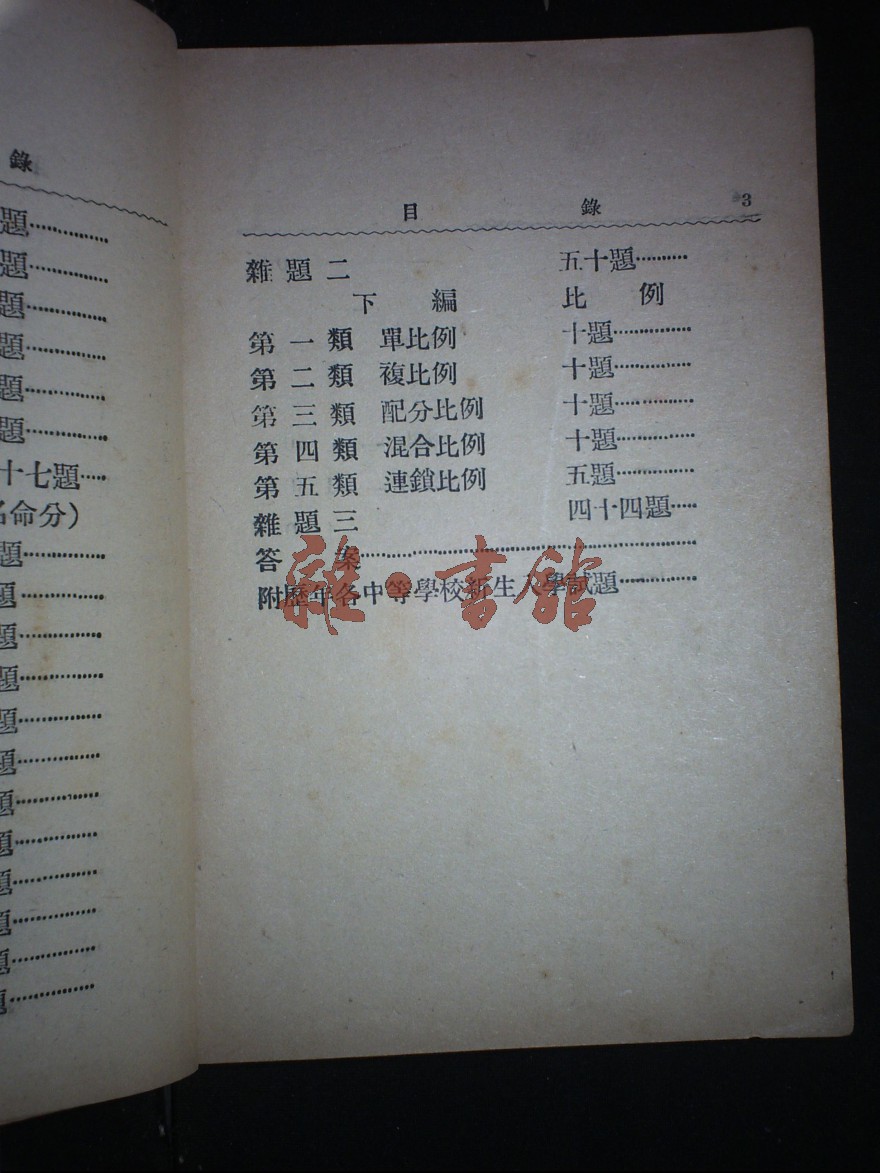 錄
題…………
題…………
題…………
題…………
題…………
題…………
十七題……
名命分)
題…………
題…………
題…………
題…………
題…………
題…………
題…………
題…………
題…………
題…………
題…………
題…………
目 錄 3
雜題二 五十題…………
下編 比例
第一類 單比例 十題…………
第二類 複比例 十題…………
第三類 配分比例 十題…………
第四類 混合比例 十題…………
第五類 連鎖比例 五題…………
雜題三 四十四題……
答案…………………………
附歷年各中等學校新生入學試題…………
雜·書館